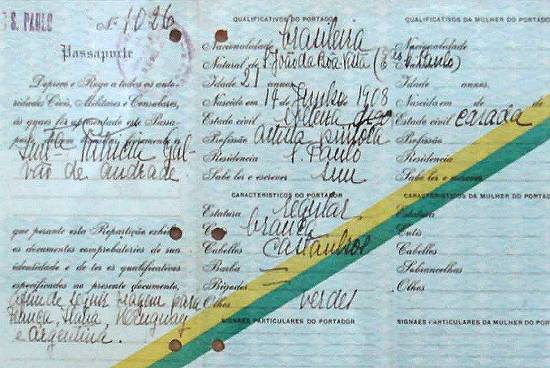 S. PAULO
Nº 1026
Passaporte
Depreco e Rogo a todos as auto-
ridades Civis, Militares e Consulares,
às quais for apresentado este Passa-
porte,
Patricia Gal-
vão de Andrade
que perante esta Repartição exhibiu
os documentos comprobatorios de sua
identidade e de ter os qualificativos
especificados no presente documento,
afim de seguir viagem para
França, Italia, Uruguay
e Argentina.
QUALIFICATIVOS DO PORTADOR
Nacionalidade brasileira
Natural de S. João da Boa Vista (Est. S. Paulo)
Idade 21 annos.
Nascido em 14 Junho 1908
Estado civil casada
Profissão artista pintora
Residencia S. Paulo
Sabe ler e escrever sim
CARACTERISTICOS DO PORTADOR
Estatura regular
branca
Cabellos castanhos
Barba —
Bigodes —
Olhos verdes
SIGNAES PARTICULARES DO PORTADOR
QUALIFICATIVOS DA MULHER DO PORTADOR
Nacionalidade
Idade annos.
Nascida em de de
Estado civil
Profissão
Residencia
Sabe ler e escrever
CARACTERISTICOS DA MULHER DO PORTADOR
Estatura
Cutis
Cabellos
Sobrancelhas
Olhos
SIGNAES PARTICULARES DA MULHER DO PORTADOR